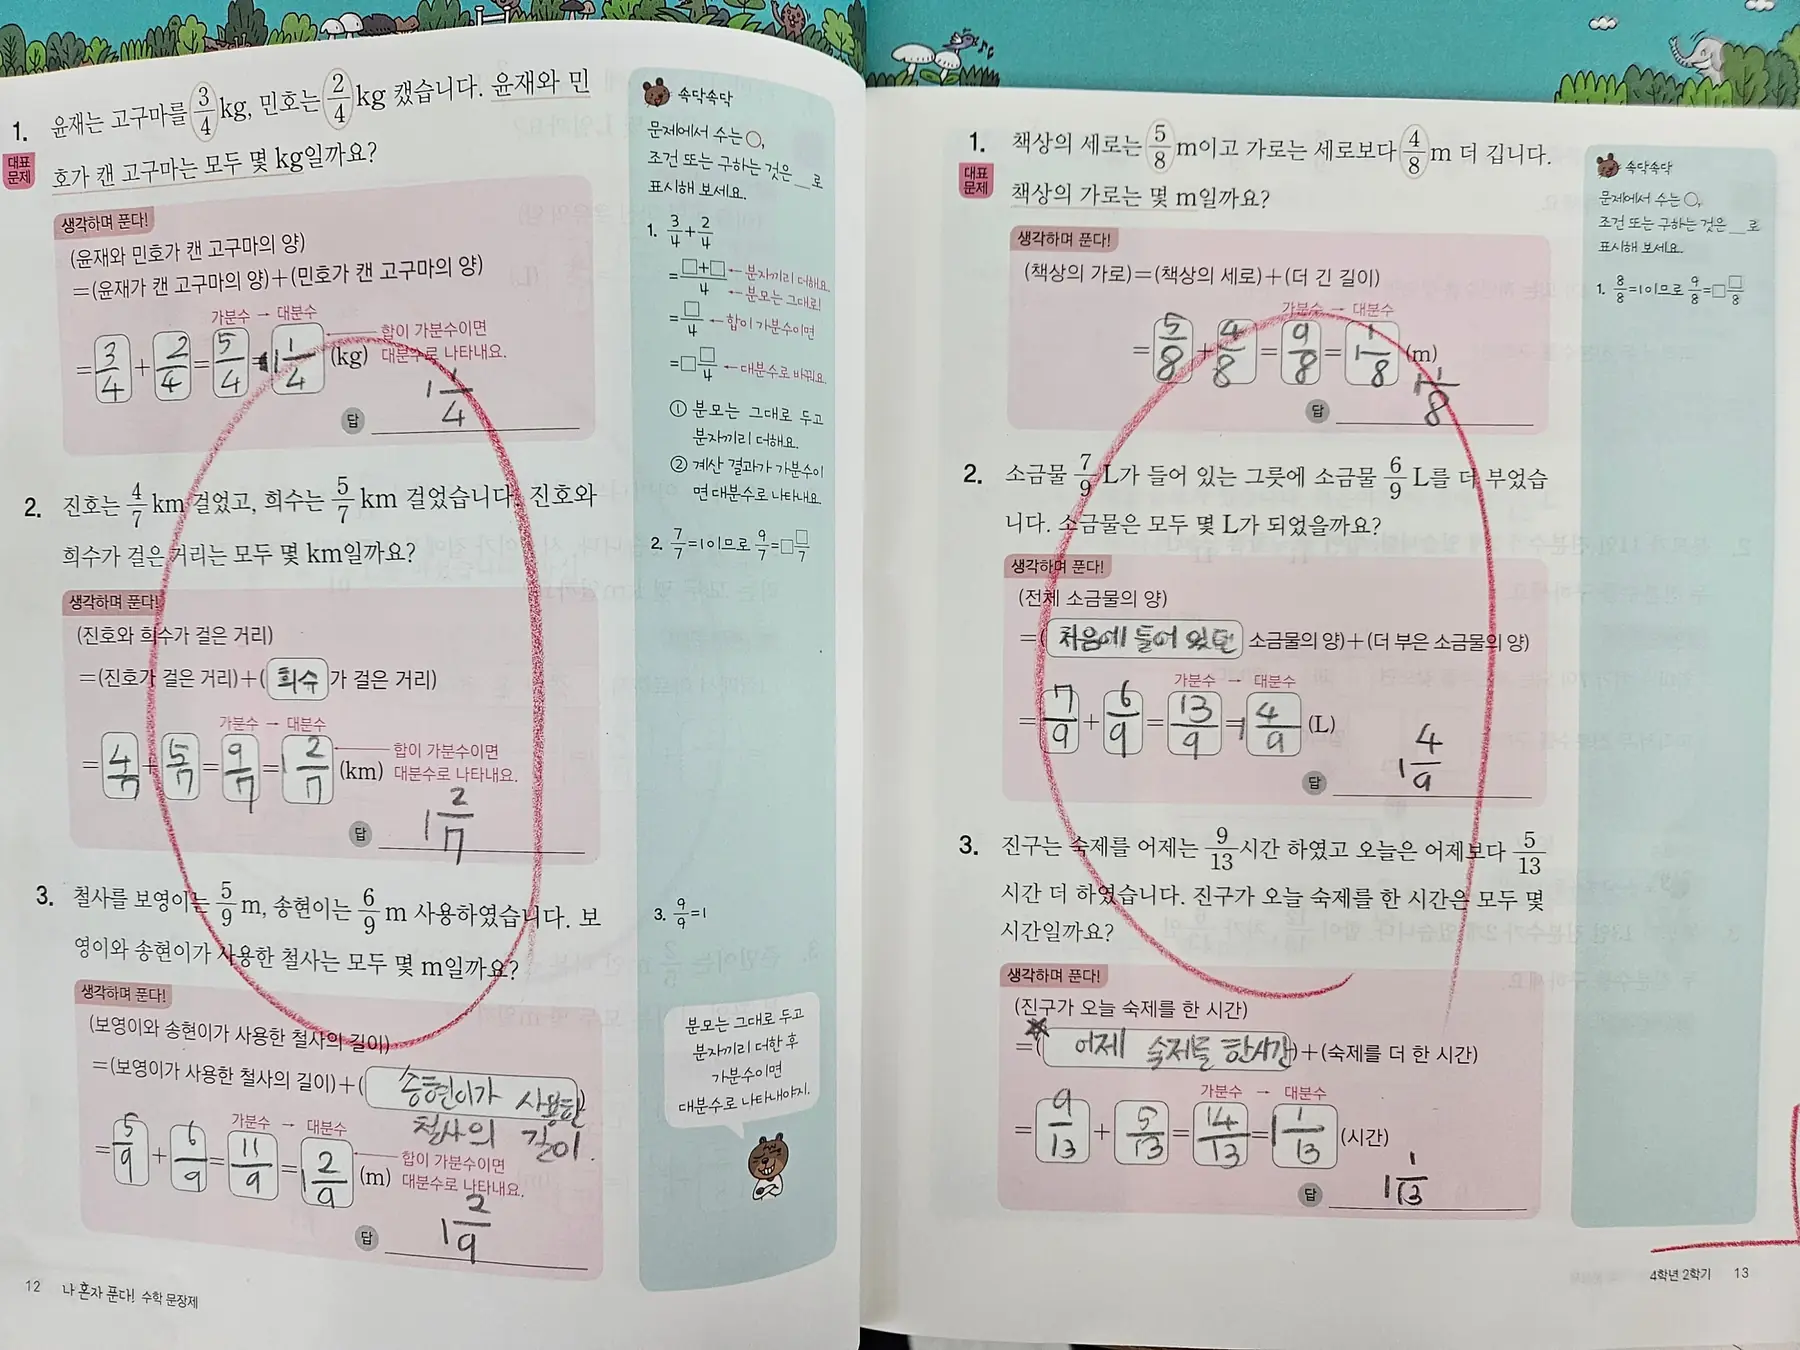 1. 윤재는 고구마를 3/4 kg, 민호는 2/4 kg 캤습니다. 윤재와 민
대표 문제
호가 캔 고구마는 모두 몇 kg일까요?
생각하며 푼다!
(윤재와 민호가 캔 고구마의 양)
=(윤재가 캔 고구마의 양)+(민호가 캔 고구마의 양)
가분수 → 대분수
=3/4+2/4=5/4=1 1/4 (kg)
합이 가분수이면
대분수로 나타내요.
답 1 1/4
2. 진호는 4/7 km 걸었고, 희수는 5/7 km 걸었습니다. 진호와
희수가 걸은 거리는 모두 몇 km일까요?
생각하며 푼다!
(진호와 희수가 걸은 거리)
=(진호가 걸은 거리)+(희수가 걸은 거리)
가분수 → 대분수
=4/7+5/7=9/7=1 2/7 (km)
합이 가분수이면
대분수로 나타내요.
답 1 2/7
3. 철사를 보영이는 5/9 m, 송현이는 6/9 m 사용하였습니다. 보
영이와 송현이가 사용한 철사는 모두 몇 m일까요?
생각하며 푼다!
(보영이와 송현이가 사용한 철사의 길이)
=(보영이가 사용한 철사의 길이)+(송현이가 사용한
철사의 길이.)
가분수 → 대분수
=5/9+6/9=11/9=1 2/9 (m)
합이 가분수이면
대분수로 나타내요.
답 1 2/9
12 나 혼자 푼다! 수학 문장제
속닥속닥
문제에서 수는 ○,
조건 또는 구하는 것은 __로
표시해 보세요.
1. 3/4+2/4
=□+□/4 ← 분자끼리 더해요.
← 분모는 그대로!
=□/4 ← 합이 가분수이면
=□ □/4 ← 대분수로 바꿔요.
① 분모는 그대로 두고
분자끼리 더해요.
② 계산 결과가 가분수이
면 대분수로 나타내요.
2. 7/7=1이므로 9/7=□ □/7
3. 9/9=1
분모는 그대로 두고
분자끼리 더한 후
가분수이면
대분수로 나타내야지.
1. 책상의 세로는 5/8 m이고 가로는 세로보다 4/8 m 더 깁니다.
대표 문제
책상의 가로는 몇 m일까요?
생각하며 푼다!
(책상의 가로)=(책상의 세로)+(더 긴 길이)
가분수 → 대분수
=5/8+4/8=9/8=1 1/8 (m)
답 1 1/8
2. 소금물 7/9 L가 들어 있는 그릇에 소금물 6/9 L를 더 부었습
니다. 소금물은 모두 몇 L가 되었을까요?
생각하며 푼다!
(전체 소금물의 양)
=(처음에 들어 있던 소금물의 양)+(더 부은 소금물의 양)
가분수 → 대분수
=7/9+6/9=13/9=1 4/9 (L)
답 1 4/9
3. 진구는 숙제를 어제는 9/13시간 하였고 오늘은 어제보다 5/13
시간 더 하였습니다. 진구가 오늘 숙제를 한 시간은 모두 몇
시간일까요?
생각하며 푼다!
(진구가 오늘 숙제를 한 시간)
=(어제 숙제를 한시간)+(숙제를 더 한 시간)
가분수 → 대분수
=9/13+5/13=14/13=1 1/13 (시간)
답 1 1/13
속닥속닥
문제에서 수는 ○,
조건 또는 구하는 것은 __로
표시해 보세요.
1. 8/8=1이므로 9/8=□ □/8
4학년 2학기 13